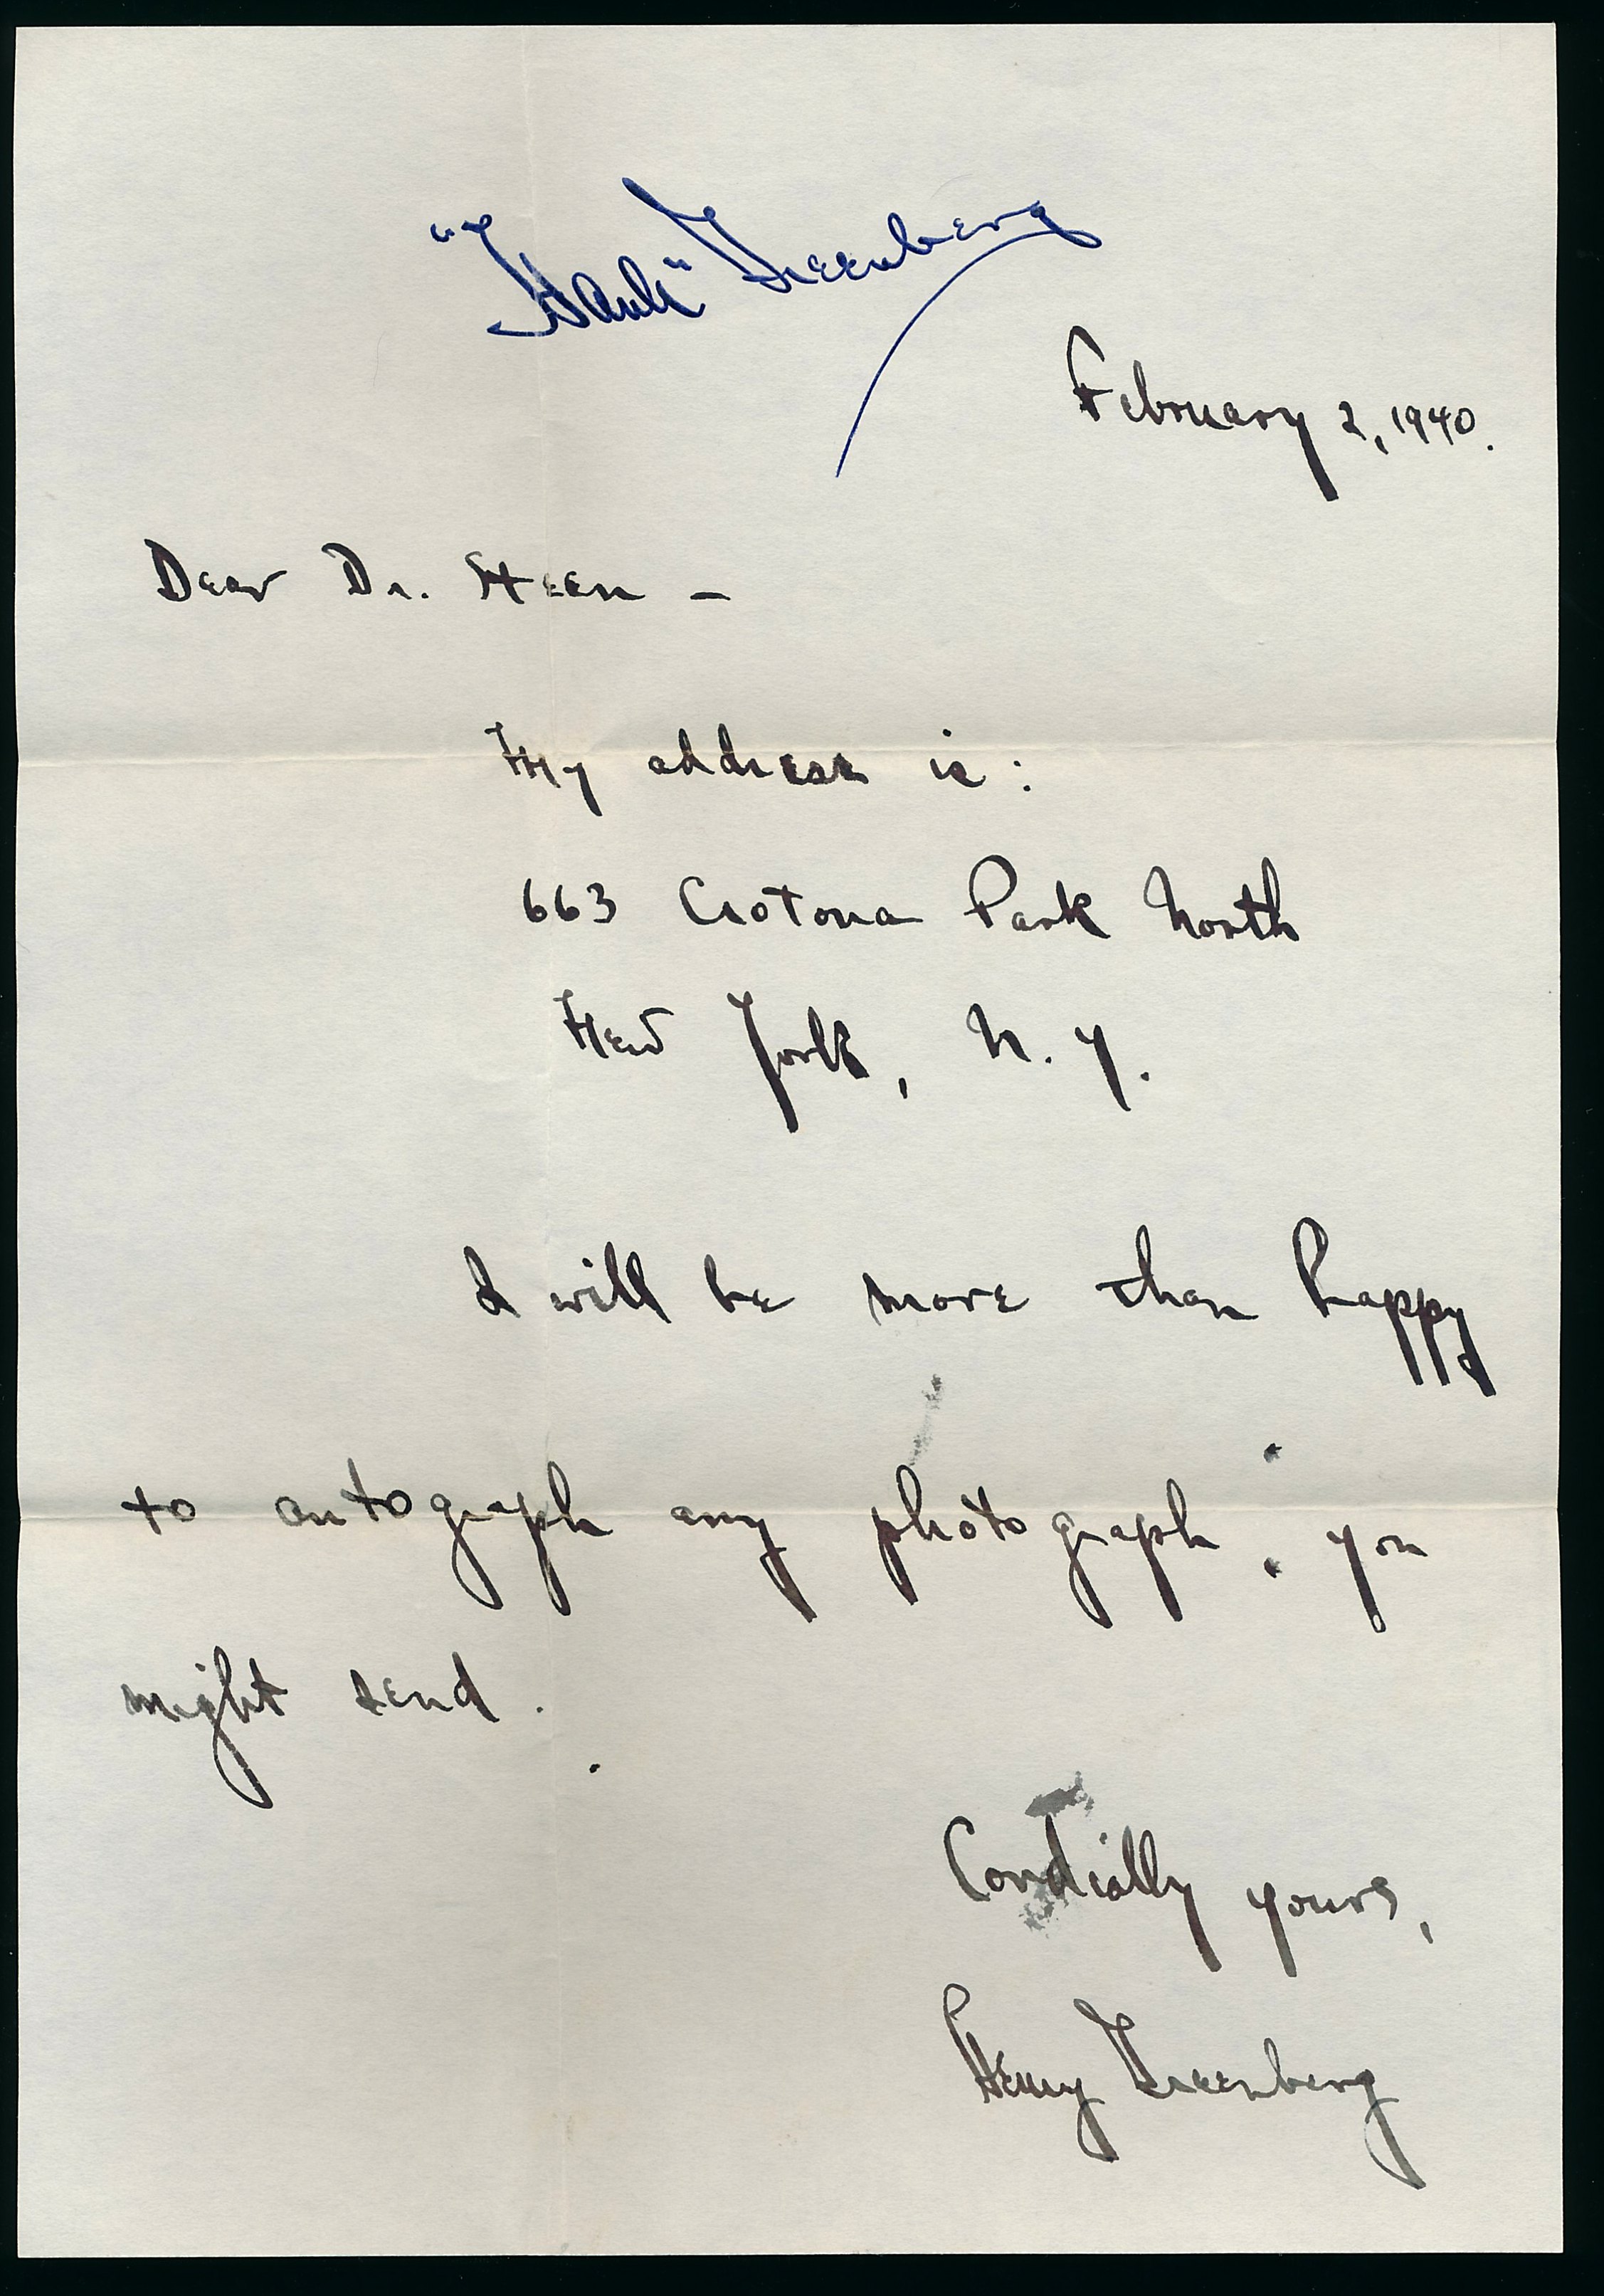 "Hank" Greenberg
February 2, 1940.
Dear Dr. Steen -
My address is:
663 Crotona Park North
New York, N. Y.
I will be more than happy
to autograph any photograph you
might send.
Cordially yours,
Henry Greenberg